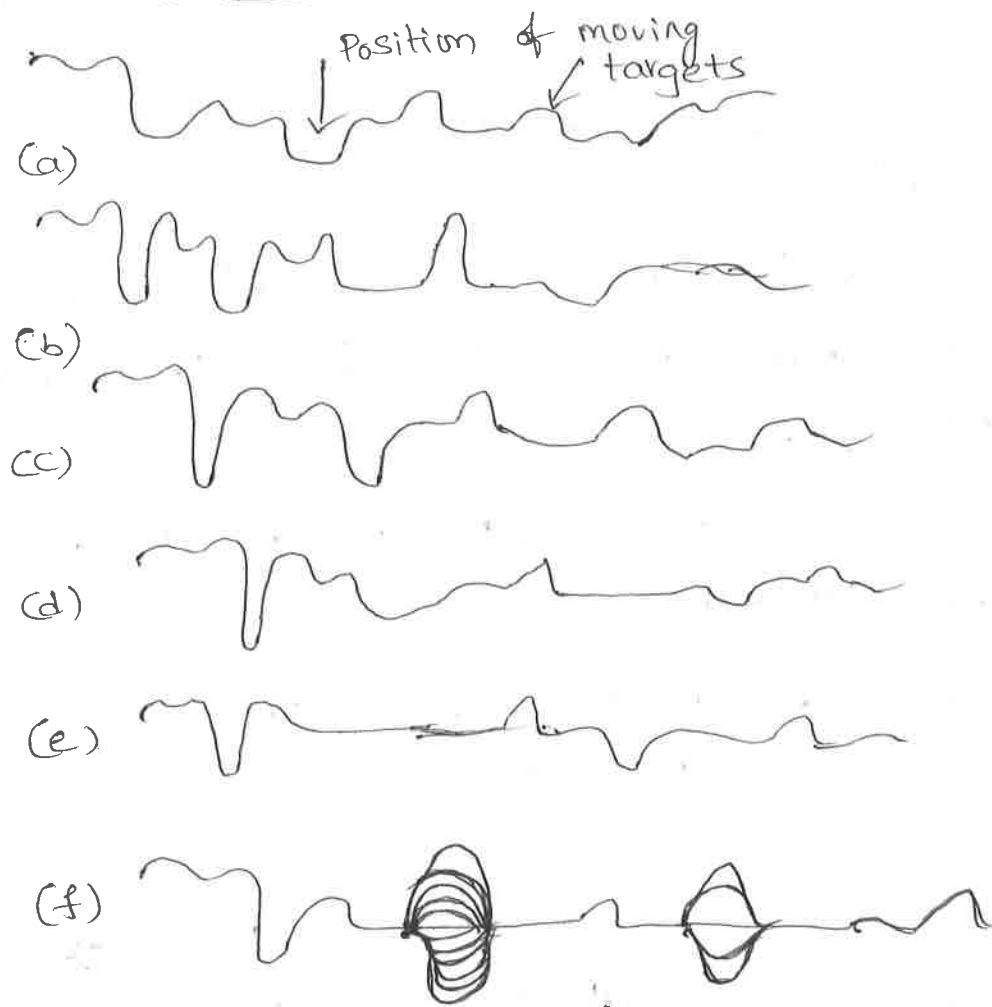 Position of moving
targets
(a)
(b)
(c)
(d)
(e)
(f)